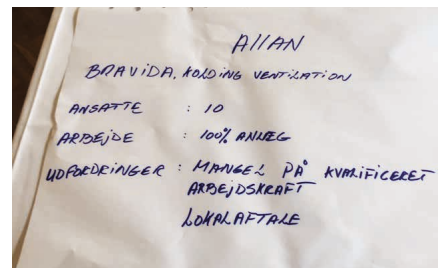 AllAN
BRAViDA. KOLDiNG VENTiLATiON
ANSATTE : 10
ARBEJDE : 100% ANLÆG
UDFORDRiNGER : MANGEL PÅ KVALiFiCERET
ARBEJDSKRAFT
LOKALAFTALE